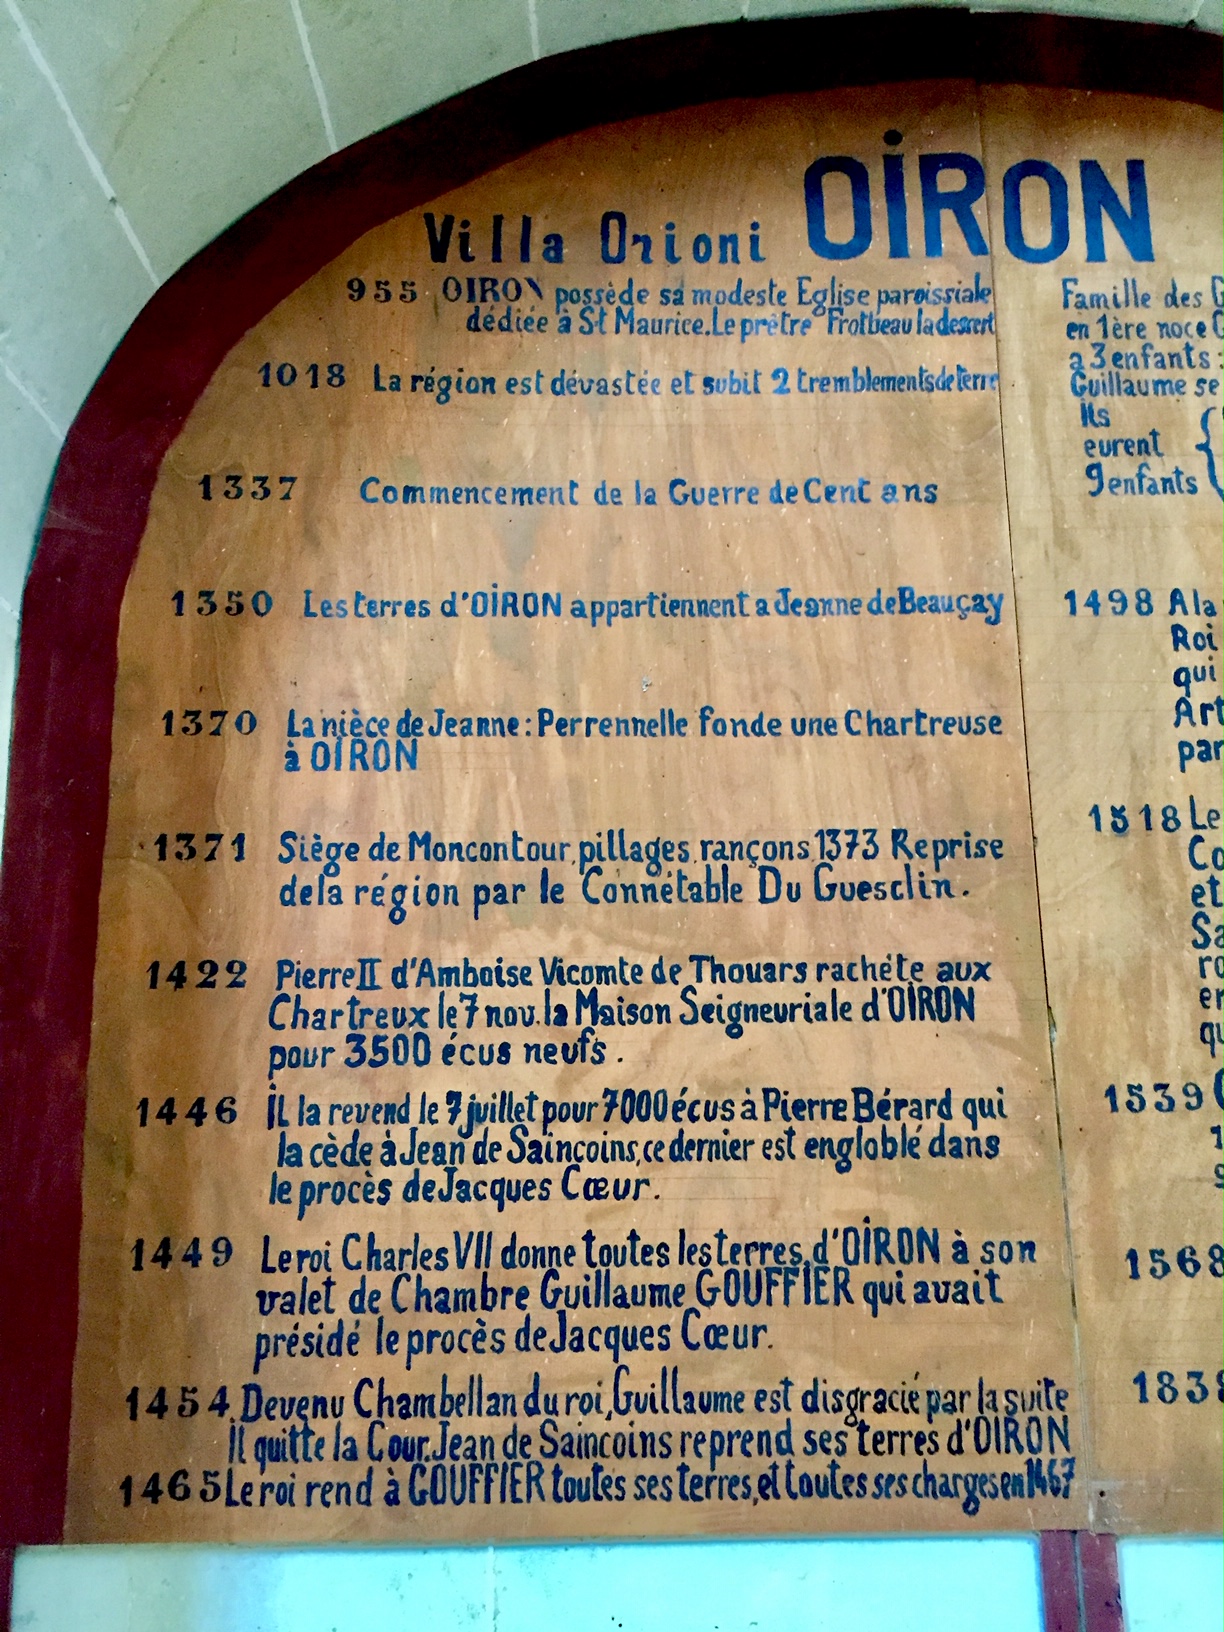 Villa Orioni OİRON
955 OIRON possède sa modeste Eglise paroissiale
dédiée à St Maurice. Le prêtre Frotbeau la dessert
1018 La région est dévastée et subit 2 tremblements de terre
1337 Commencement de la Guerre de Cent ans
1350 Les terres d'OİRON appartiennent a Jeanne de Beauçay
1370 La nièce de Jeanne : Perrennelle fonde une Chartreuse
à OİRON
1371 Siège de Moncontour, pillages, rançons, 1373 Reprise
de la région par le Connétable Du Guesclin.
1422 Pierre II d'Amboise Vicomte de Thouars rachéte aux
Chartreux le 7 nov. la Maison Seigneuriale d'OİRON
pour 3500 écus neufs.
1446 İL la revend le 7 juillet pour 7000 écus à Pierre Bérard qui
la cède à Jean de Saincoins, ce dernier est engloblé dans
le procès de Jacques Cœur.
1449 Le roi Charles VII donne toutes les terres d'OİRON à son
valet de Chambre Guillaume GOUFFIER qui avait
présidé le procès de Jacques Cœur.
1454 Devenu Chambellan du roi, Guillaume est disgracié par la suite
Il quitte la Cour. Jean de Saincoins reprend ses terres d'OIRON
1465 Le roi rend à GOUFFIER toutes ses terres, et toutes ses charges en 1467
Famille des G
en 1ère noce
a 3 enfants :
Guillaume se
Ils
eurent
9 enfants
1498 A la
Roi
qui
Art
par
1518 Le
Co
et
Sa
ro
en
qu
1539
1568
183